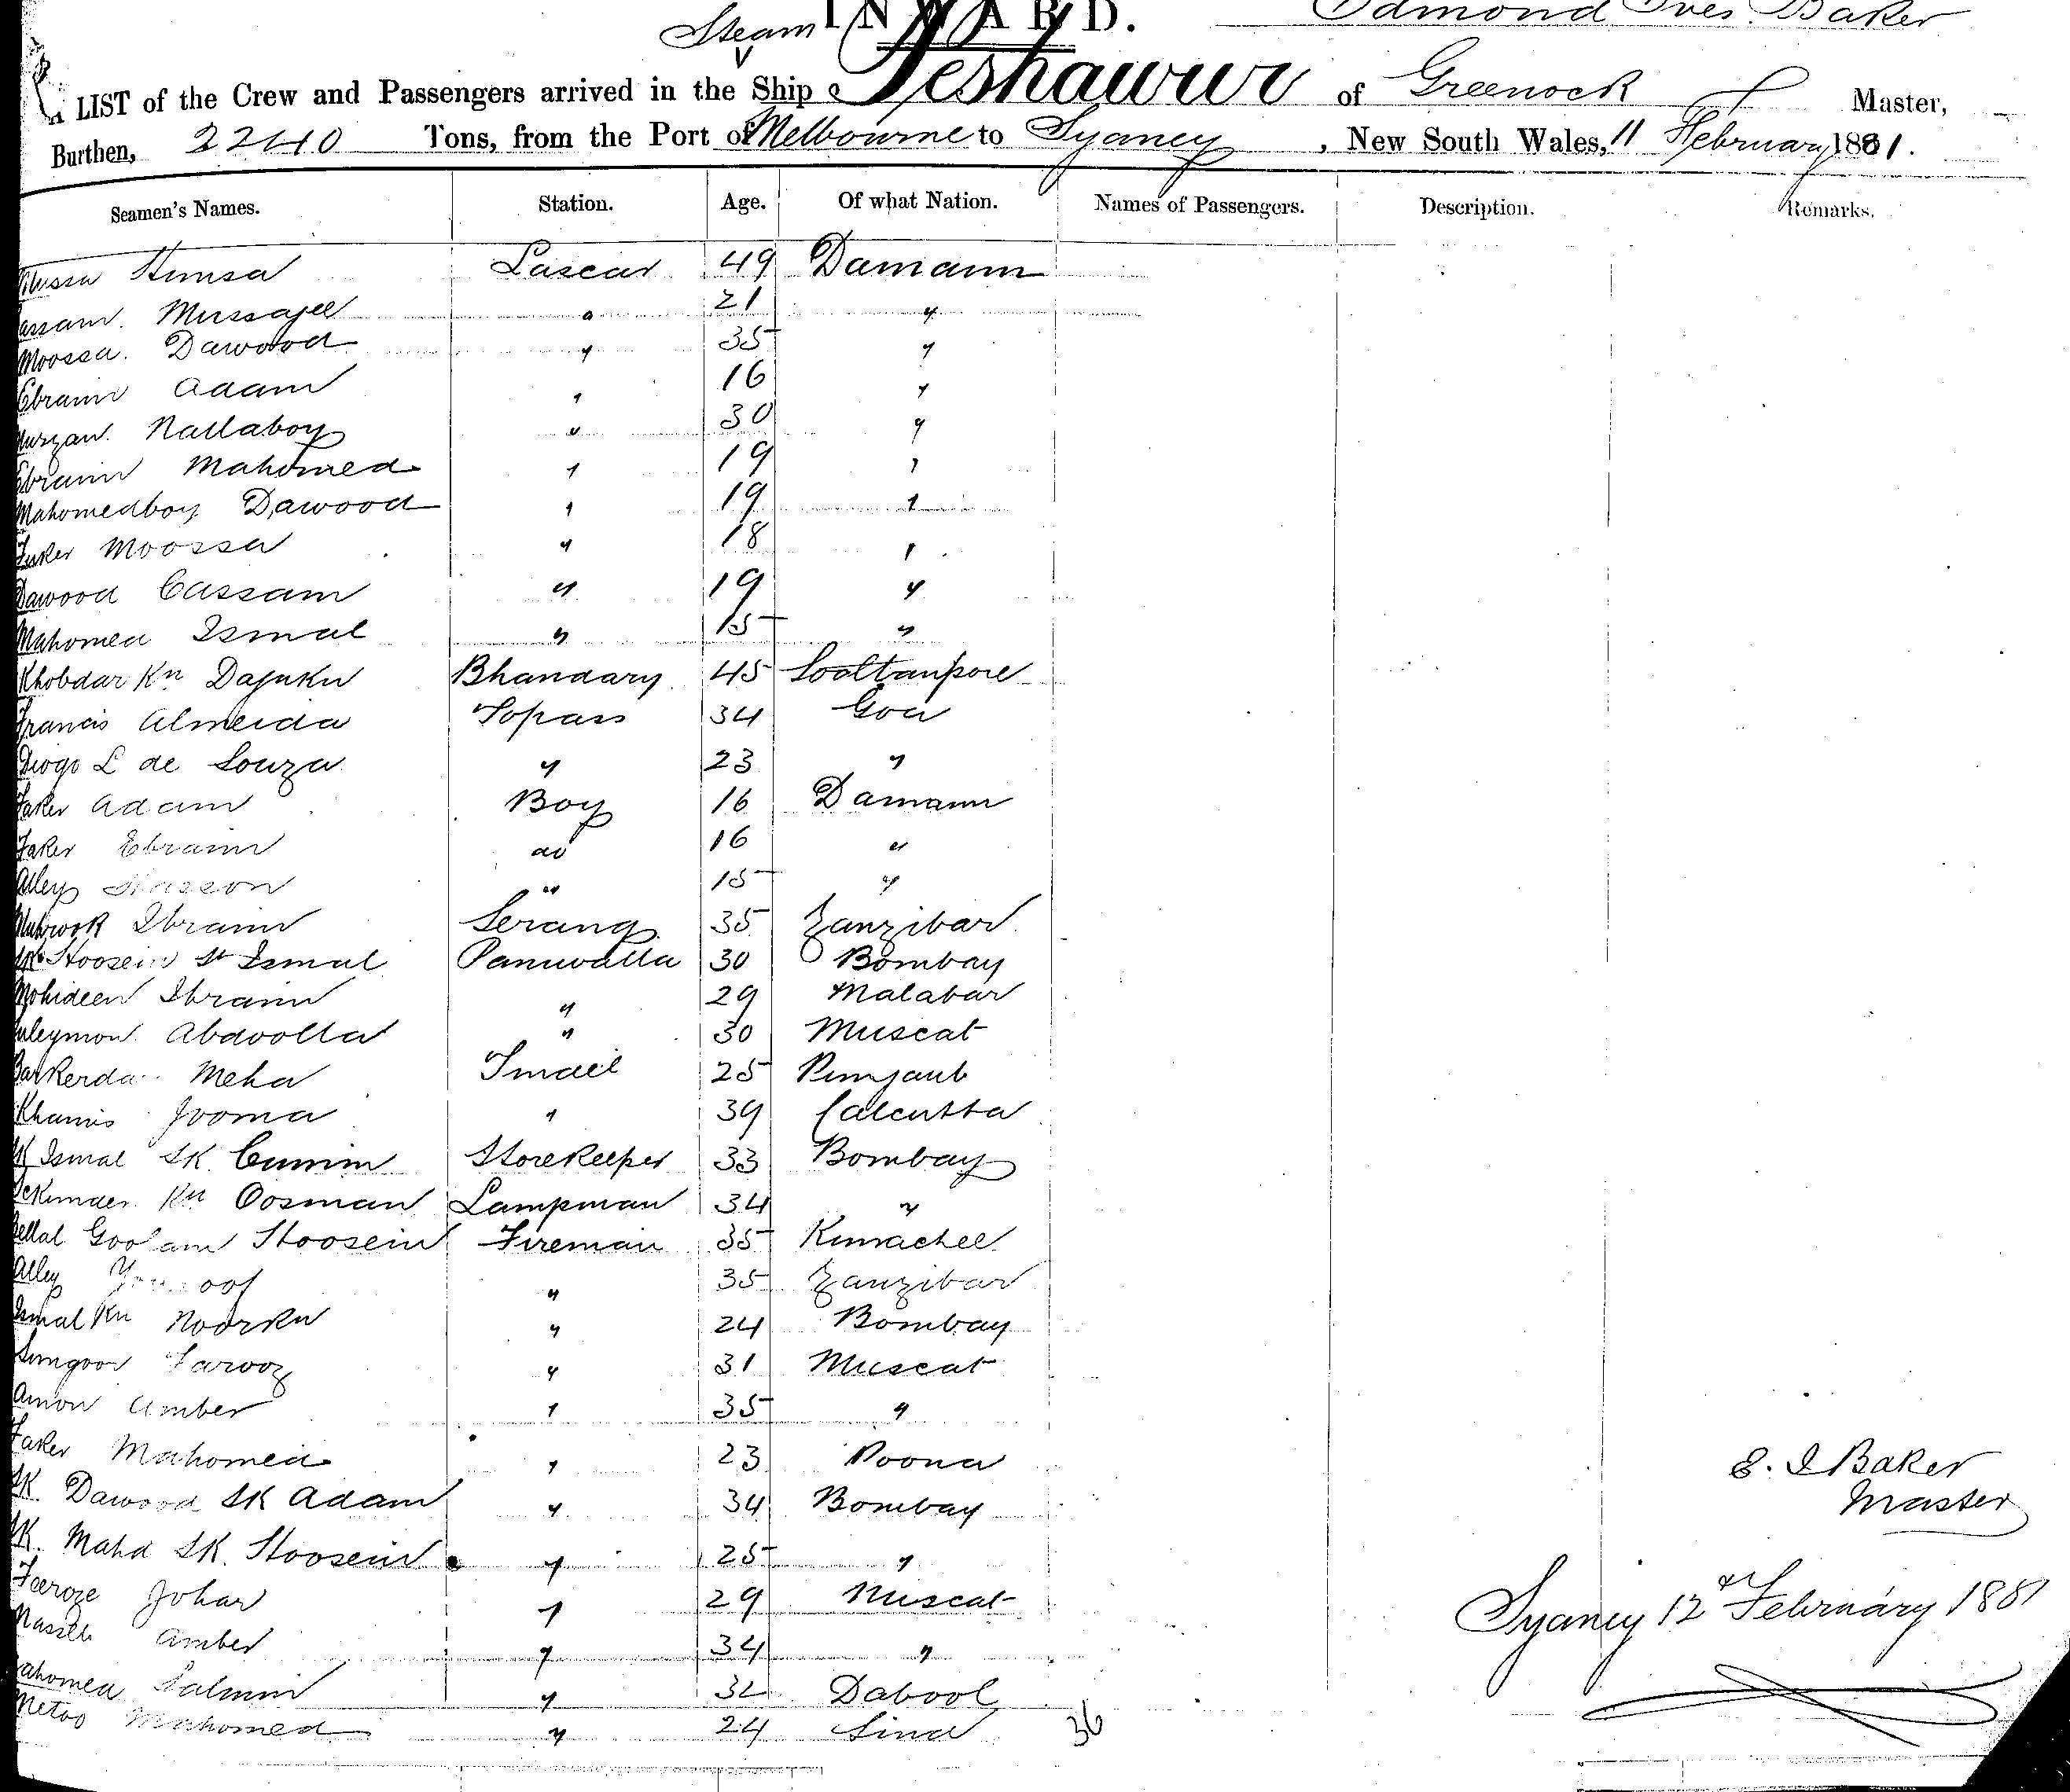 Steam INWARD. Edmond Ives Baker
LIST of the Crew and Passengers arrived in the Ship Peshawur of Greenock Master,
Burthen, 2240 Tons, from the Port of Melbourne to Sydney, New South Wales, 11 February 1881.
Seamen's Names. Station. Age. Of what Nation. Names of Passengers. Description. Remarks.
Lascar 49 Damaun
Mussajee " 21 "
Moossa Dawood " 35 "
Ebraim Adam " 16 "
Nallaboy " 30 "
Ebraim Mahomed " 19 "
Mahomedboy Dawood " 19 "
Moossa " 18 "
Dawood Cassam " 19 "
Mahomed Ismal " 15 "
Khobdar Kn Dajuku Bhandary 45 Sooltanpore
Francis Almeida Topass 34 Goa
Diogo L de Souza " 23 "
Faker Adam Boy 16 Damaun
Faker Ebraim do 16 "
Alley " 15 "
Mubrook Ibraim Serang 35 Zanzibar
Hoosein Sk Ismal Paniwalla 30 Bombay
Mohideen Ibraim " 29 Malabar
Suleymon Abdoolla " 30 Muscat
Meha Tindel 25 Punjaub
Khamis Jooma " 39 Calcutta
Sk Ismal SK Cumim Storekeeper 33 Bombay
Sekunder Kn Oosman Lampman 34 "
Bellal Goolam Hoosein Fireman 35 Kurrachee
Alley " 35 Zanzibar
Ismal Kn Noorkn " 24 Bombay
Farooz " 31 Muscat
Amon Amber " 35 "
Faker Mahomed " 23 Poona
SK. Dawood SK Adam " 34 Bombay
SK. Mahd SK. Hoosein " 25 "
Feroze Johar " 29 Muscat
Nassib Amber " 34 "
Mahomed Salmin " 32 Dabool
Mahomed " 24 Sind 36
E. I Baker
Master
Sydney 12th February 1881